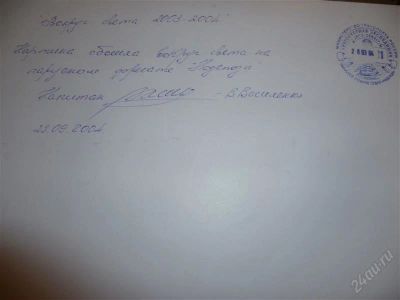 "Вокруг света 2003-2004"
Картина обошла вокруг света на
парусном фрегате "Надежда"
Капитан - В. Василенко
23.09.2004
24au.ru